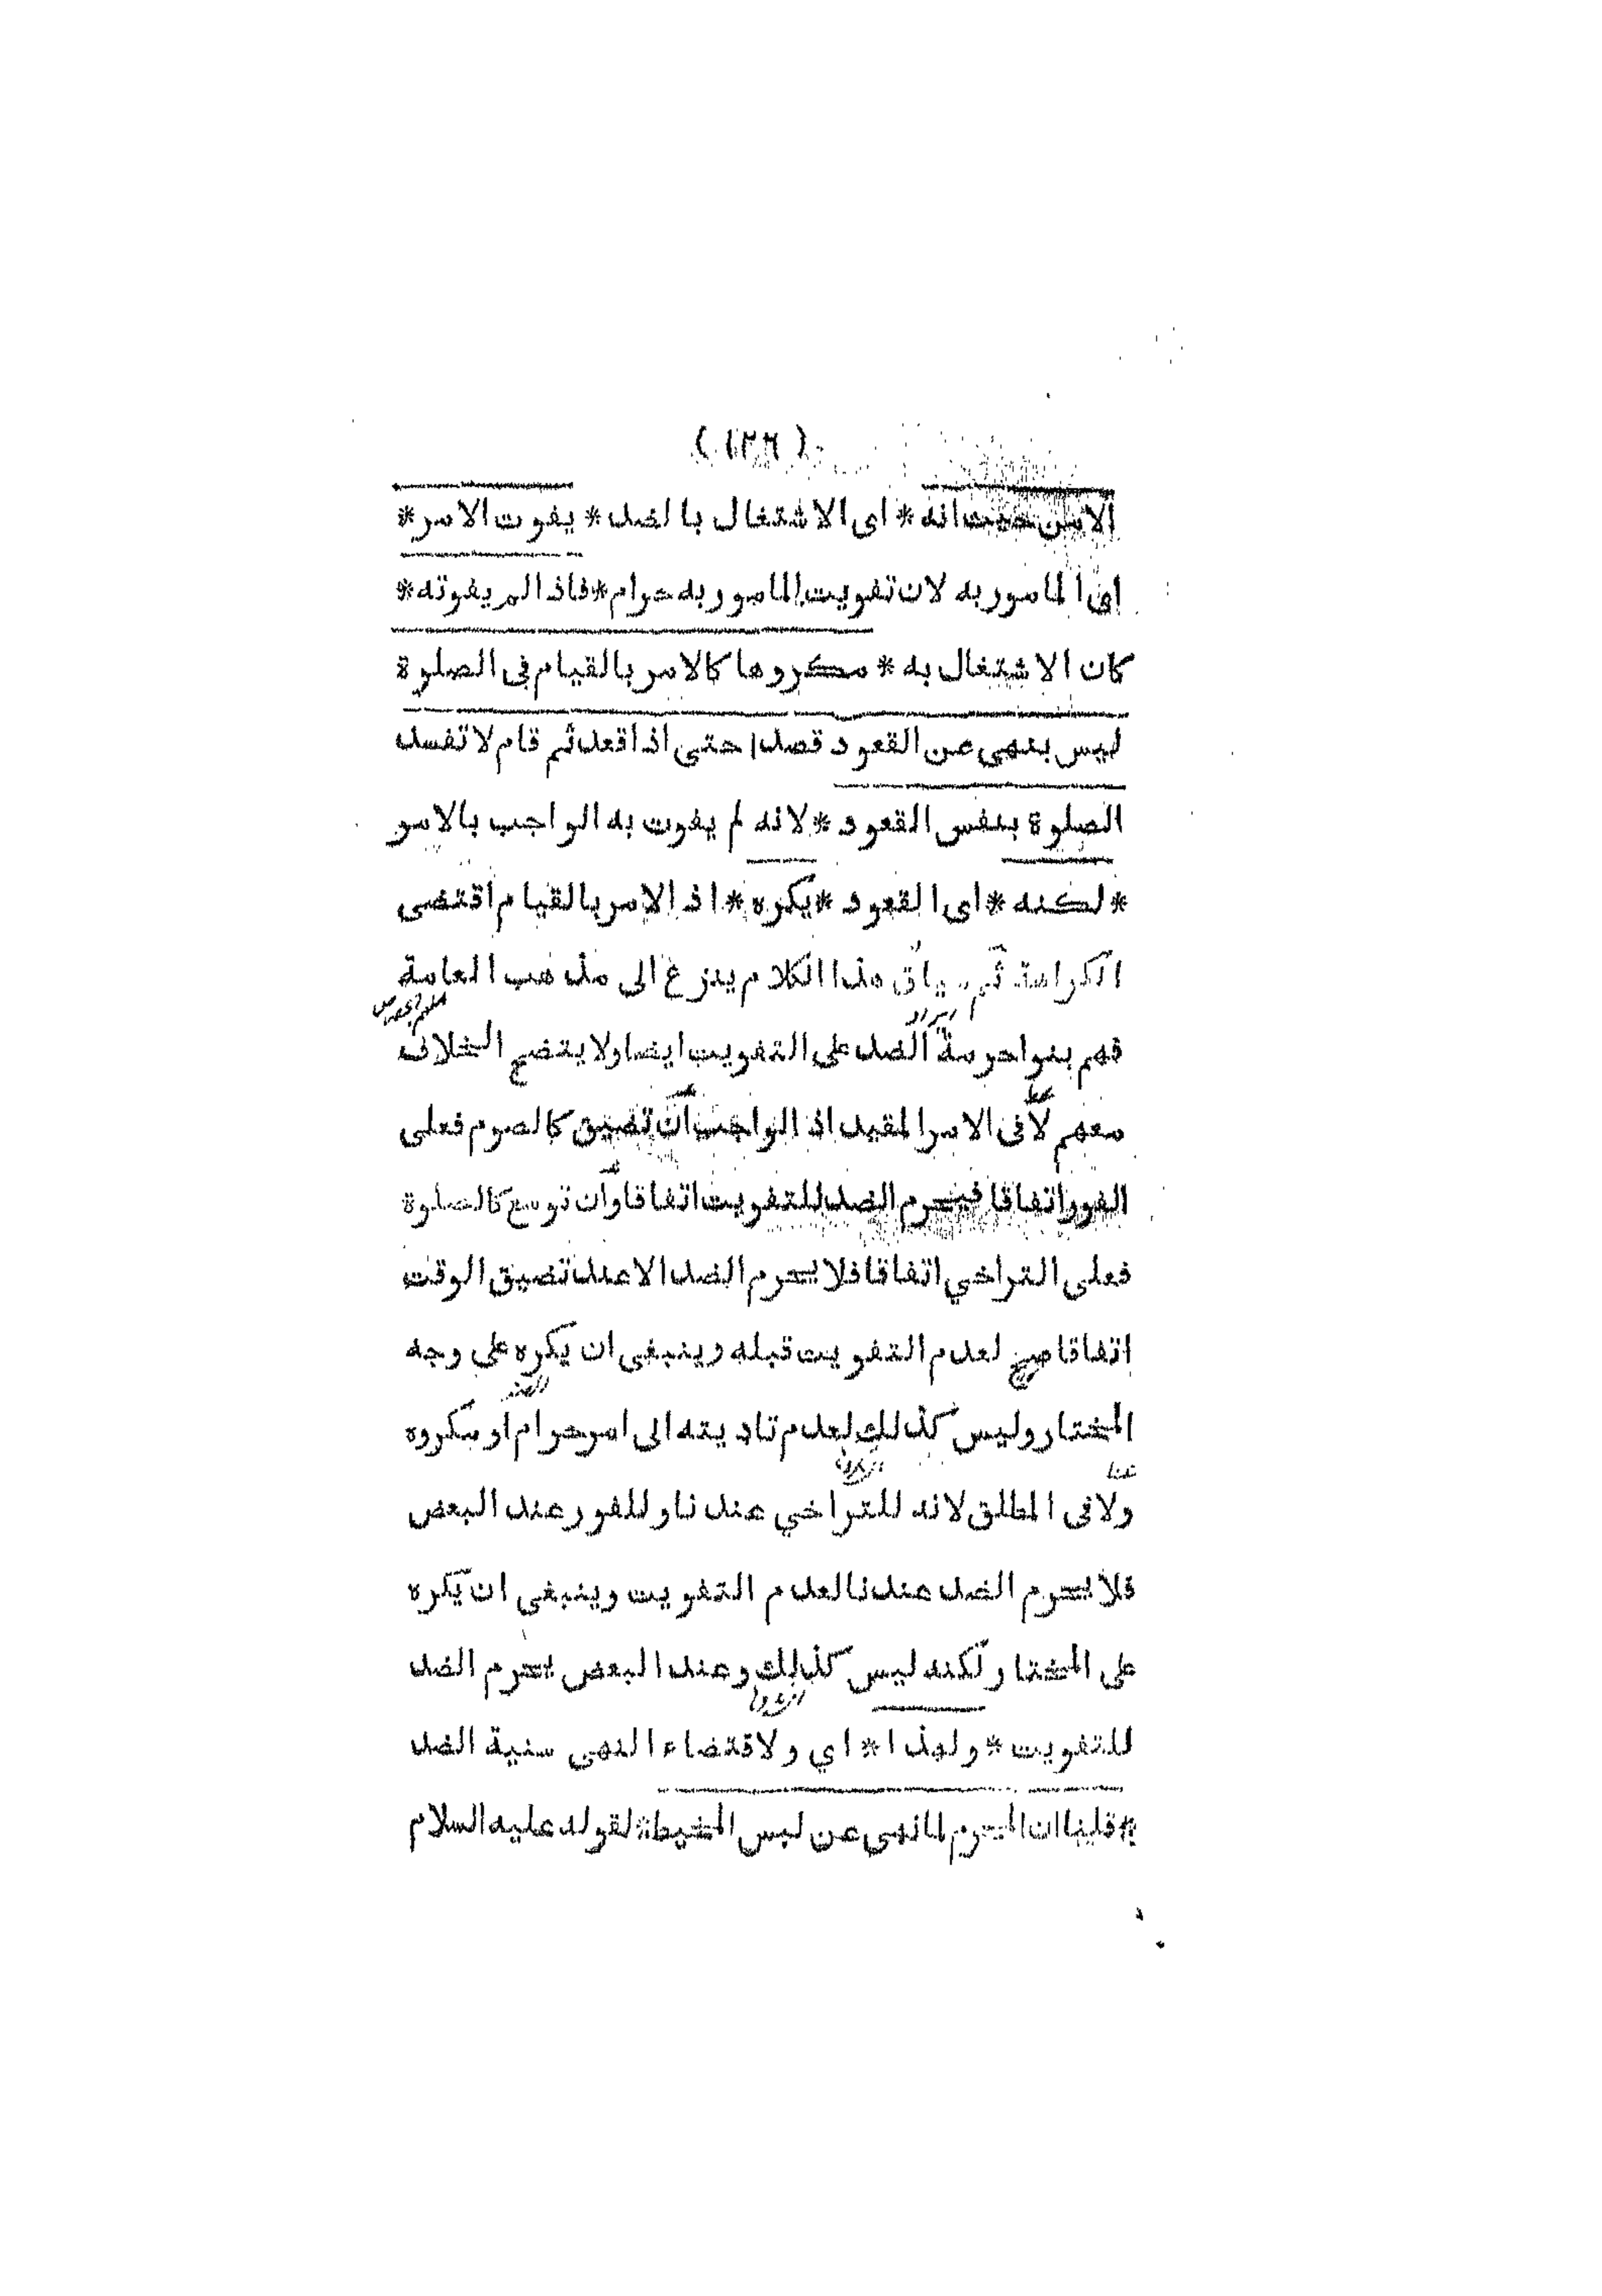 ( ١٣٦ )
الا من حيث انه * اى الاشتغال بالضد * يفوت الامر *
اى المامور به لان تفويت المامور به حرام * فاذا لم يفوته *
كان الاشتغال به * مكروها كالامر بالقيام فى الصلوة
ليس بنهى عن القعود قصدا حتى اذا قعد ثم قام لا تفسد
الصلوة بنفس القعود * لانه لم يفوت به الواجب بالامر
* لكنه * اى القعود * يكره * اذ الامر بالقيام اقتضى
الكراهة ثم سياق هذا الكلام ينزع الى مذهب العامة
فهم بنوا حرمة الضد على التفويت ايضا ولا يتضح الخلاف
معهم لا فى الامر المقيد اذ الواجب ان تضيق كالصوم فعلى
الفور اتفاقا فيحرم الضد للتفويت اتفاقا وان توسع كالصلوة
فعلى التراخي اتفاقا فلا يحرم الضد الا عند تضيق الوقت
اتفاقا صح لعدم التفويت قبله وينبغى ان يكره على وجه
المختار وليس كذلك لعدم تاديته الى امر حرام او مكروه
ولا فى المطلق لانه للتراخي عندنا وللفور عند البعض
فلا يحرم الضد عندنا لعدم التفويت وينبغى ان يكره
على المختار لكنه ليس كذلك وعند البعض يحرم الضد
للتفويت * ولهذا * اي ولاقتضاء النهى سنية الضد
* قلنا ان المحرم لما نهى عن لبس المخيط * لقوله عليه السلام